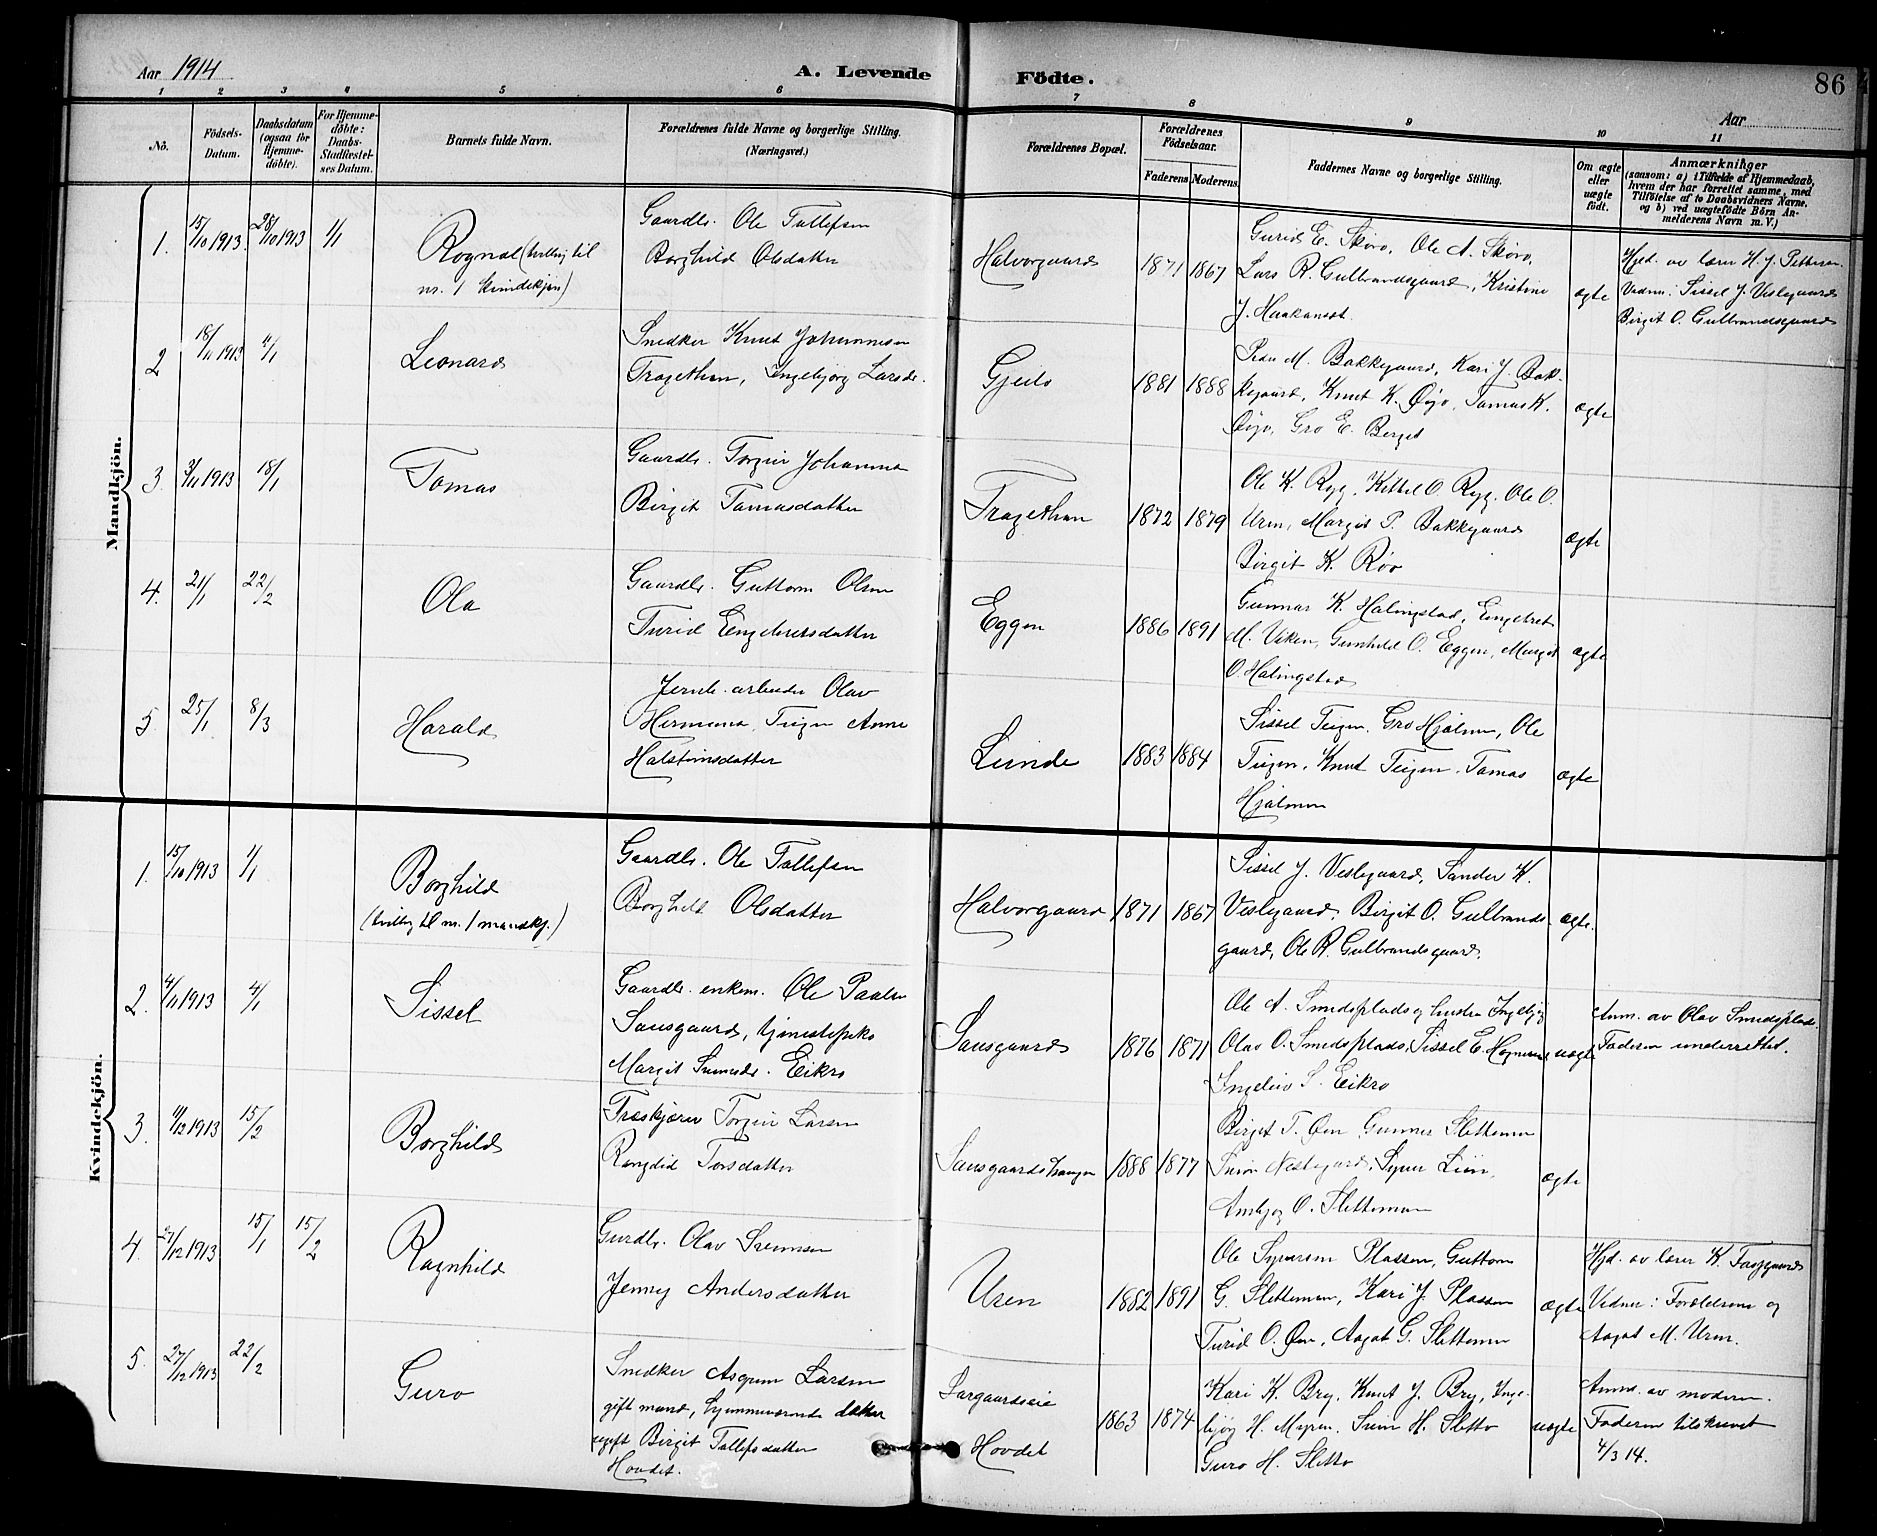 Aar 1914
A. Levende Födte.
86
Aar
1 2 3 4 5 6 7 8 9 10 11
No.
Födsels-Datum.
Daabsdatum (ogsaa for Hjemme-döbte).
For Hjemme-döbte: Daabs-Stadfæstel-ses Datum.
Barnets fulde Navn.
Forældrenes fulde Navne og borgerlige Stilling. (Næringsvei.)
Forældrenes Bopæl.
Forældrenes Födselsaar.
Faderens Moderens
Faddernes Navne og borgerlige Stilling.
Om ægte eller uægte födt.
Anmærkninger
(saasom: a) i Tilfælde af Hjemmedaab, hvem der har forrettet samme, med Tilföielse af to Daabsvidners Navne. og b) ved uægtefödte Börn An-melderens Navn m. V.)
Mandkjön.
1. 15/10 1913 28/10 1913 1/1
Rognal (tvilling til
nr. 1 kvindekjön)
Gaardbr. Ole Tollefsen
Borghild Olsdatter
Halvorgaard 1871 1867
Gurid E. Skøro, Ole A. Skøro,
Lars R. Gulbrandsgaard, Kristine
J. Haakanset.
ægte
Hjd. av lærer H. J. Pettersen.
Vidner: Sissel J. Veslegaard
Birgit O. Gulbrandsgaard
2 18/11 1913 4/1
Leonard
Snedker Knut Johannesen
Tragethun, Ingebjørg Larsd.
Gjeilo 1881 1888
Peder M. Bakkegaard, Kari J. Bak-
kegaard, Knut K. Øijo, Tomas K.
Øijo, Gro E. Berget
ægte
3. 3/11 1913 18/1
Tomas
Gaardbr. Torgeir Johannes
Birgit Tomasdatter
Tragethun 1872 1879
Ole K. Ryg, Kittel O. Ryg, Ole O.
Uren, Margit P. Bakkegaard
Birgit K. Røo
ægte
4. 21/1 22/2
Ola
Gaardbr. Guttorm Olsen
Turid Engebretsdatter
Eggen 1886 1891
Gunnar K. Halingstad, Eingebret
M. Viken, Gunhild O. Eggen, Margit
O. Halingstad
ægte
5. 25/1 8/3
Harald
Jernb. arbeider Olav
Hermans. Teigen Anne
Halsteinsdatter
Lunde 1883 1884
Sissel Teigen, Gro Hjelmen, Ole
Teigen, Knut Teigen, Tomas
Hjelmen
ægte
Kvindekjön.
1. 15/10 1913 1/1
Borghild
(tvilling til nr. 1 mandkj.)
Gaardbr. Ole Tollefsen
Borghild Olsdatter
Halvorgaard 1871 1867
Sissel J. Veslegaard, Sander K.
Veslegaard, Birgit O. Gulbrands-
gaard, Ole R. Gulbrandsgaard.
ægte.
2. 4/11 1913 4/1
Sissel
Gaardbr. enkem. Ole Paalsen
Sausgaard, tjenestepike
Margit Svensdr. Eikro
Sausgaard 1876 1871
Ole A. Smedsplads og hustru Ingebjørg
Olav O. Smedsplads, Sissel E.
Ingeleiv S. Eikro
uægte
Anm. av Olav Smedsplads.
Faderen underrettet.
3. 11/12 1913 15/2
Borghild
Træskjærer Torgeir Larsen
Rangdid Torsdatter
Sausgaardshaugen 1888 1877
Birgit T. Øen Gunnar Slettemoen
Nestegard, Syver Lien,
Ambjøg O. Slettemoen
ægte
4. 27/12 1913 15/1 15/2
Ragnhild
Gardbr. Olav Svensen
Jenny Andersdatter
Uren 1882 1891
Ole Syversen Plassen, Guttorm
G. Slettemoen, Kari J. Plassen
Turid O. Øen, Aagot G. Slettemoen
ægte
Hjd. av lærer K.
Vidner: Forældrene og
Aagot M. Uren.
5. 27/12 1913 22/2
Guro
Snedker Asgrim Larsen
gift mand, hjemmeværende datter
ugift Birgit Tollefsdatter
Hovdet.
Sørgaardseie
Hovdet
1863 1874
Kari K. Bry, Knut J. Bry, Inge-
bjørg H. Myren, Svein H. Sletto
Guro H. Sletto
uægte
Anm. av moderen.
Faderen tilskrevet
4/3 14.